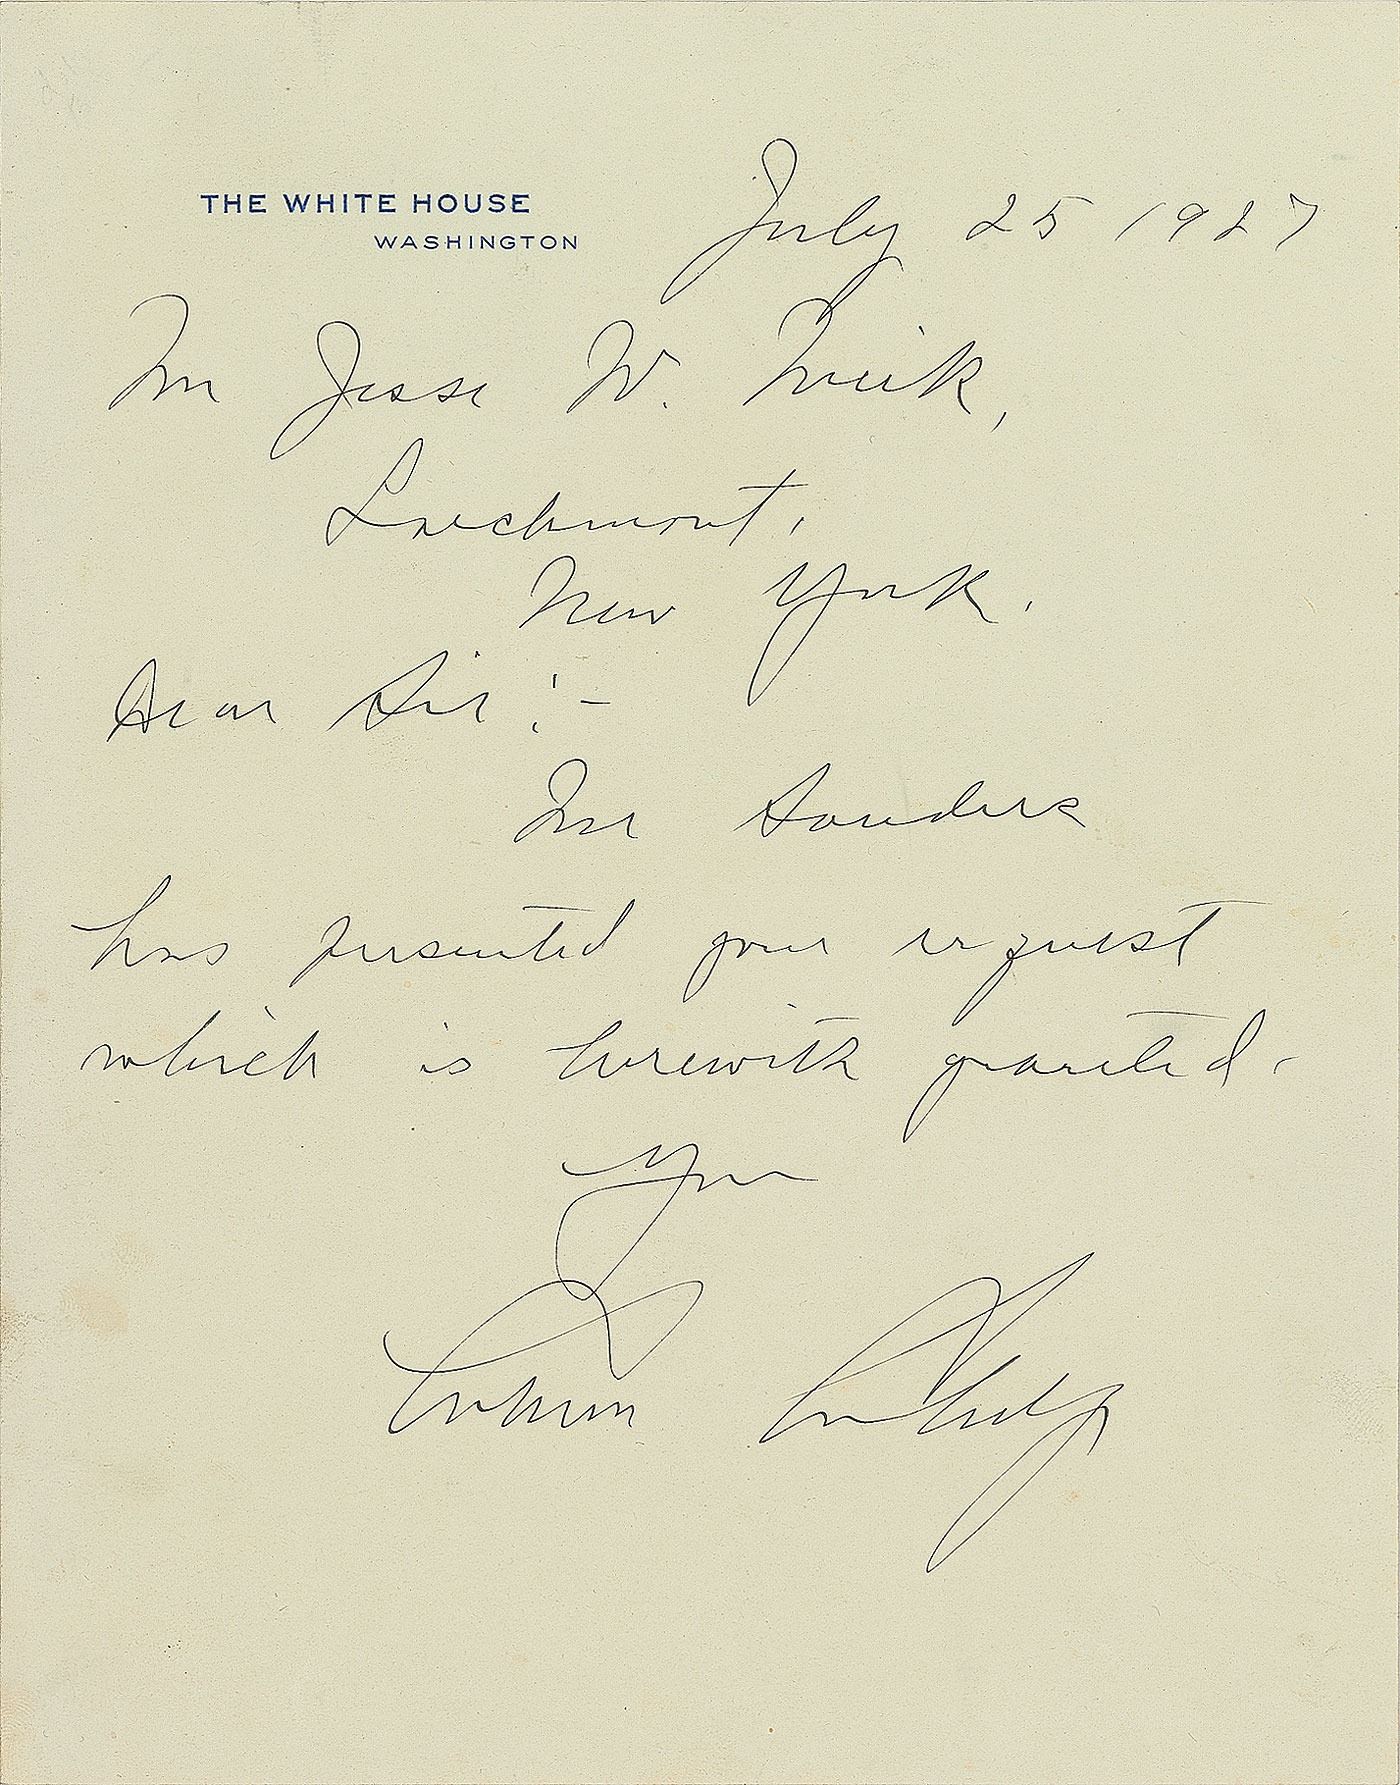 THE WHITE HOUSE
WASHINGTON
July 25 1927
Mr Jesse W. Weik,
Larchmont,
New York.
Dear Sir:-
Mr Sanders
has presented your request
which is herewith granted.
Your
Calvin Coolidge